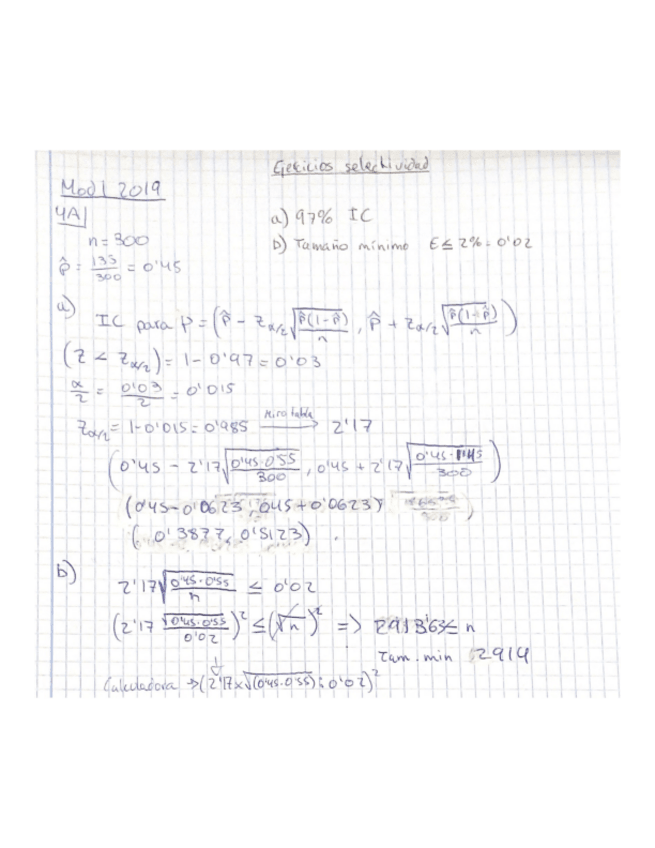 Ejercicios selectividad
Mod 1 2019
4A
a) 97% IC
n = 300
b) Tamaño mínimo E ≤ 2% = 0'02
p̂ = 135/300 = 0'45
a)
IC para P = (p̂ - Zα/2 √(p̂(1-p̂)/n), p̂ + Zα/2 √(p̂(1-p̂)/n))
(Z < Zα/2) = 1 - 0'97 = 0'03
α/2 = 0'03/2 = 0'015
Zα/2 = 1 - 0'015 = 0'985 —Miro tabla→ 2'17
(0'45 - 2'17 √(0'45·0'55/300), 0'45 + 2'17 √(0'45·/300))
(0'45 - 0'0623, 0'45 + 0'0623)
(0'3877, 0'5123).
b)
2'17 √(0'45·0'55/n) ≤ 0'02
(2'17 √(0'45·0'55)/0'02)² ≤ (√n)² => 2913'63 ≤ n
Tam. min 2914
Calculadora → (2'17×√(0'45·0'55):0'02)²